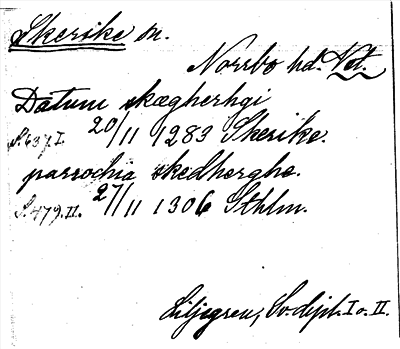 Skerike sn.
Norrbo hd. Vst.
Datum skægherhgi
S.637.I. 20/11 1283 Skerike.
parrochia skedherghe.
S.479.II. 27/11 1306 Sthlm.
Liljegren, Sv. dipl. I o. II.